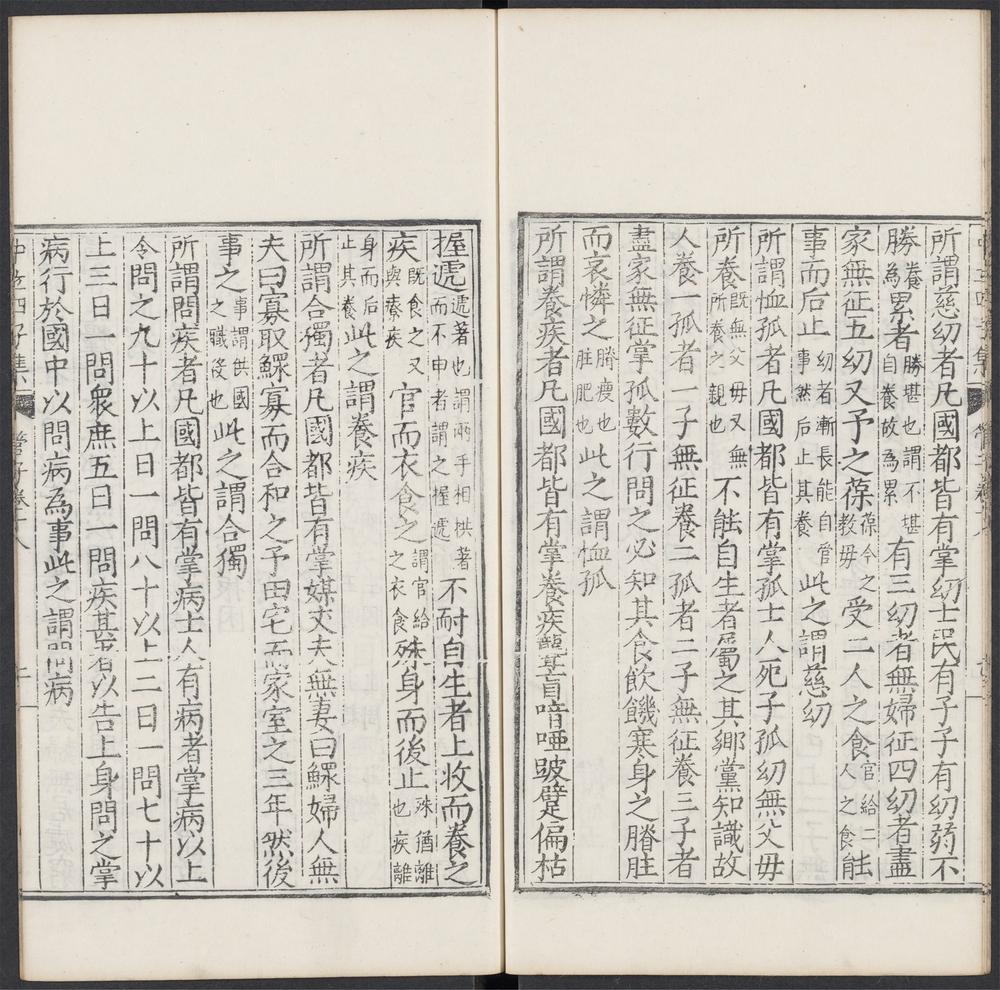 所謂慈幼者凡國都皆有掌幼士民有子子有幼弱不
勝養為累者勝堪也謂不堪自養故為累有三幼者無婦征四幼者盡
家無征五幼又予之葆葆今之教毋受二人之食官給二人之食能
事而后止幼者漸長能自管事然后止其養此之謂慈幼
所謂恤孤者凡國都皆有掌孤士人死子孤幼無父母
所養既無父毋又無所養之親也不能自生者屬之其鄉黨知識故
人養一孤者一子無征養二孤者二子無征養三子者
盡家無征掌孤數行問之必知其食飲饑寒身之膌胜
而哀憐之膌瘦也胜肥也此之謂恤孤
所謂養疾者凡國都皆有掌養疾聾盲喑啞跛躄偏枯
握遞遞著也謂兩手相拱著而不申者謂之握遞不耐自生者上收而養之
疾既食之又與療疾官而衣食之謂官給之衣食殊身而後止殊猶離也疾離
身而后止其養此之謂養疾
所謂合獨者凡國都皆有掌媒丈夫無妻曰鰥婦人無
夫曰寡取鰥寡而合和之予田宅而家室之三年然後
事之事謂供國之職役也此之謂合獨
所謂問疾者凡國都皆有掌病士人有病者掌病以上
令問之九十以上日一問八十以上二日一問七十以
上三日一問眾庶五日一問疾甚者以告上身問之掌
病行於國中以問病為事此之謂問病
中立四子集 管子卷十八